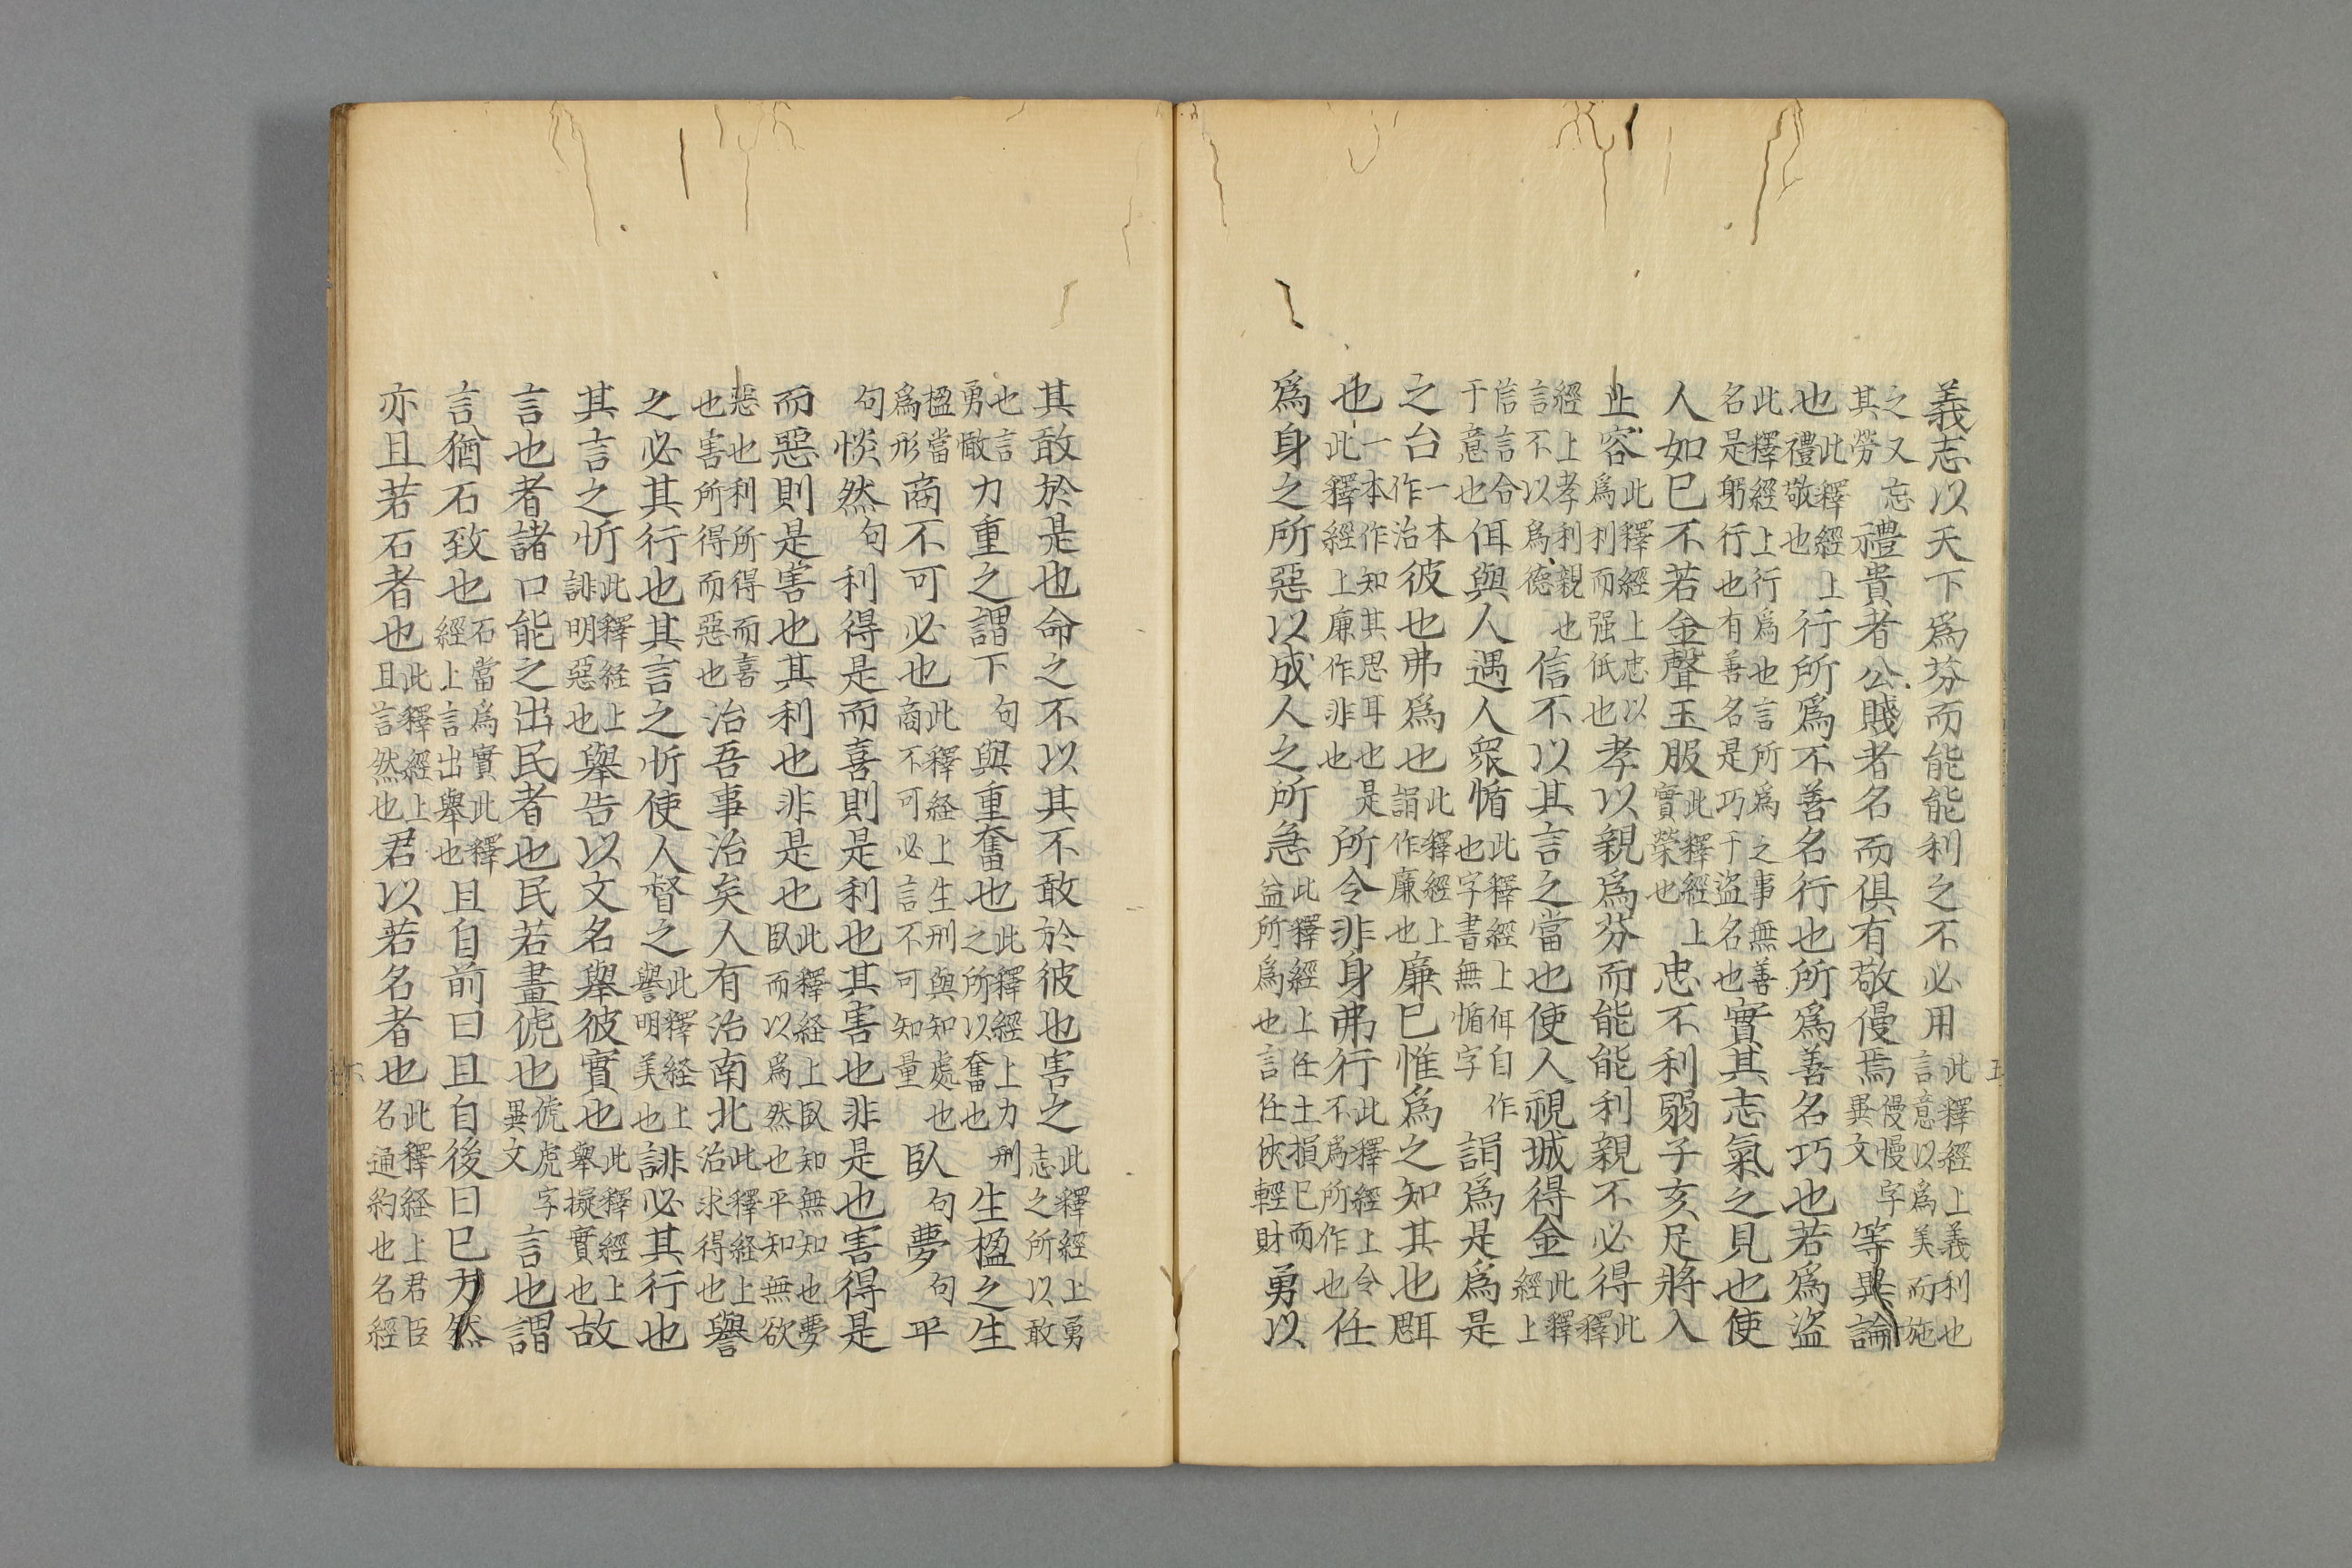 義志以天下爲芬而能能利之不必用此釋經上義利也言意以爲美而施
之又忘其勞禮貴者公賤者名而俱有敬僈焉僈慢字異文等異論
也此釋經上禮敬也行所爲不善名行也所爲善名巧也若爲盜
此釋經上行爲也言所爲之事無善名是躬行也有善名是巧于盜名也實其志氣之見也使
人如已不若金聲玉服此釋經上實榮也忠不利弱子亥足將入
止容此釋經上忠以爲利而强低也孝以親爲芬而能能利親不必得此釋
經上孝利親也言不以爲德信不以其言之當也使人視城得金此釋經上
信言合于意也佴與人遇人衆㥚此釋經上佴自作也字書無㥚字誚爲是爲是
之台一本作治彼也弗爲也此釋經上誚作廉也廉已惟爲之知其也𦖷
也一本作知其思耳也此釋經上廉作非也是所令非身弗行此釋經上令不爲所作也任
爲身之所惡以成人之所急此釋經上任士損已而益所爲也言任俠輕財勇以
其敢於是也命之不以其不敢於彼也害之此釋經上勇志之所以敢
也言勇敢力重之謂下句與重奮也此釋經上力刑之所以奮也生楹之生
楹當爲形商不可必也此釋経上生刑與知處也商不可必言不可知量臥句夢句平
句惔然句利得是而喜則是利也其害也非是也害得是
而惡則是害也其利也非是也此釋経上臥知無知也夢臥而以爲然也平知無欲
惡也利所得而喜也害所得而惡也治吾事治矣人有治南北此釋経上治求得也譽
之必其行也其言之忻使人督之此釋経上譽明美也誹必其行也
其言之忻此釋経上誹明惡也舉告以文名舉彼實也此釋經上舉擬實也故
言也者諸口能之出民者也民若畫俿也俿虎字異文言也謂
言猶石致也石當爲實此釋經上言出舉也且自前曰且自後曰已方然
亦且若石者也此釋經上且言然也君以若名者也此釋経上君臣名通約也名經
五
六